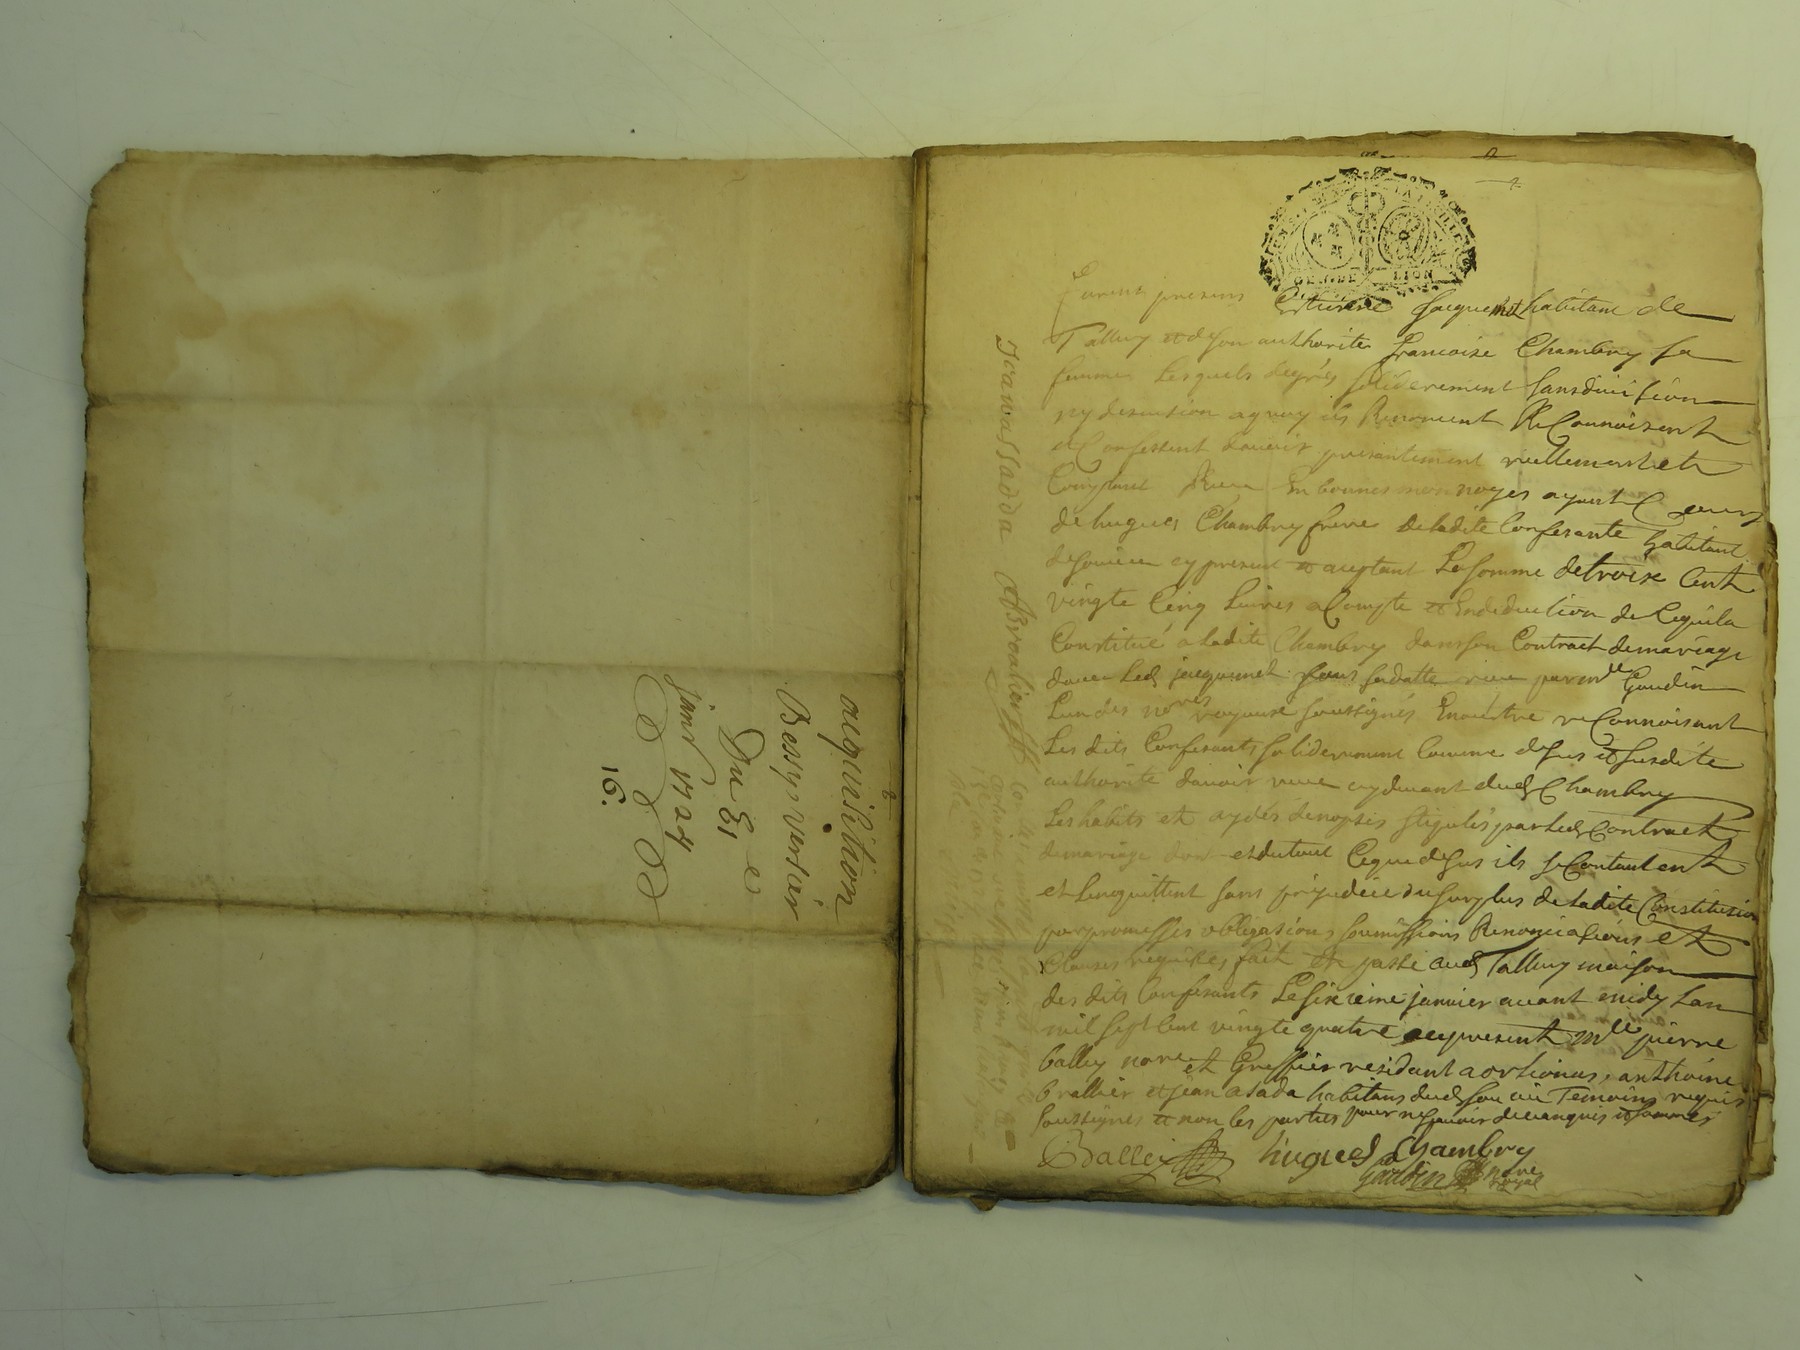 aquisition
Bessy vertair
Du 6e
janv 1724
16.
GENER LION
furent presens Estienne Jacquemet habitant de
Talluy et de son authorite francoise Chambry sa
femme Lesquels degrés soliderement sans division
ny discution a quoy ils Renoncent ReConnoisent
et Confessent davoir presantement reellement et
Comptant Receu En bonnes monnoyes ayant Cours
de hugues Chambry frere de ladite Confesante habitant
de soucieu cy present et aceptant La somme de troise Cent
vingte Cinq Livres a Compte et En deduction de Cequi la
Constitué a Ladite Chambry dans son Contract de mariage
davec Led jacquemet sous sa datte receu par mre Gaudin
Lun des nores royaux soussignés En outre reConnoisant
Les dits Confesants soliderement Comme desus et susdite
authorite davoir receu cy devant dud Chambry
Les habits et aydes de nopses stipulés par led Contract
de mariage dont et du tout Ce que desus ils se Contantent
et Lenquittent sans prejudice du surplus de ladite Constitusion
par promesses obligasions soumissions Renonciasions et
Clauses requises fait et passé aud Talluy maison
des dits Confesants Le sixieme janvier avant midy Lan
mil sept Cent vingte quatre en present mre pierre
balley nore et Greffier residant a orlienas, anthoine
brallier et jean asada habitans dud souciu Temoins requis
soussignes et non les parties pour ne sçavoir de ce enquis et sommés
Balley hugues Chambry
Gaudin nore
royal
Jean assadda ABroalier